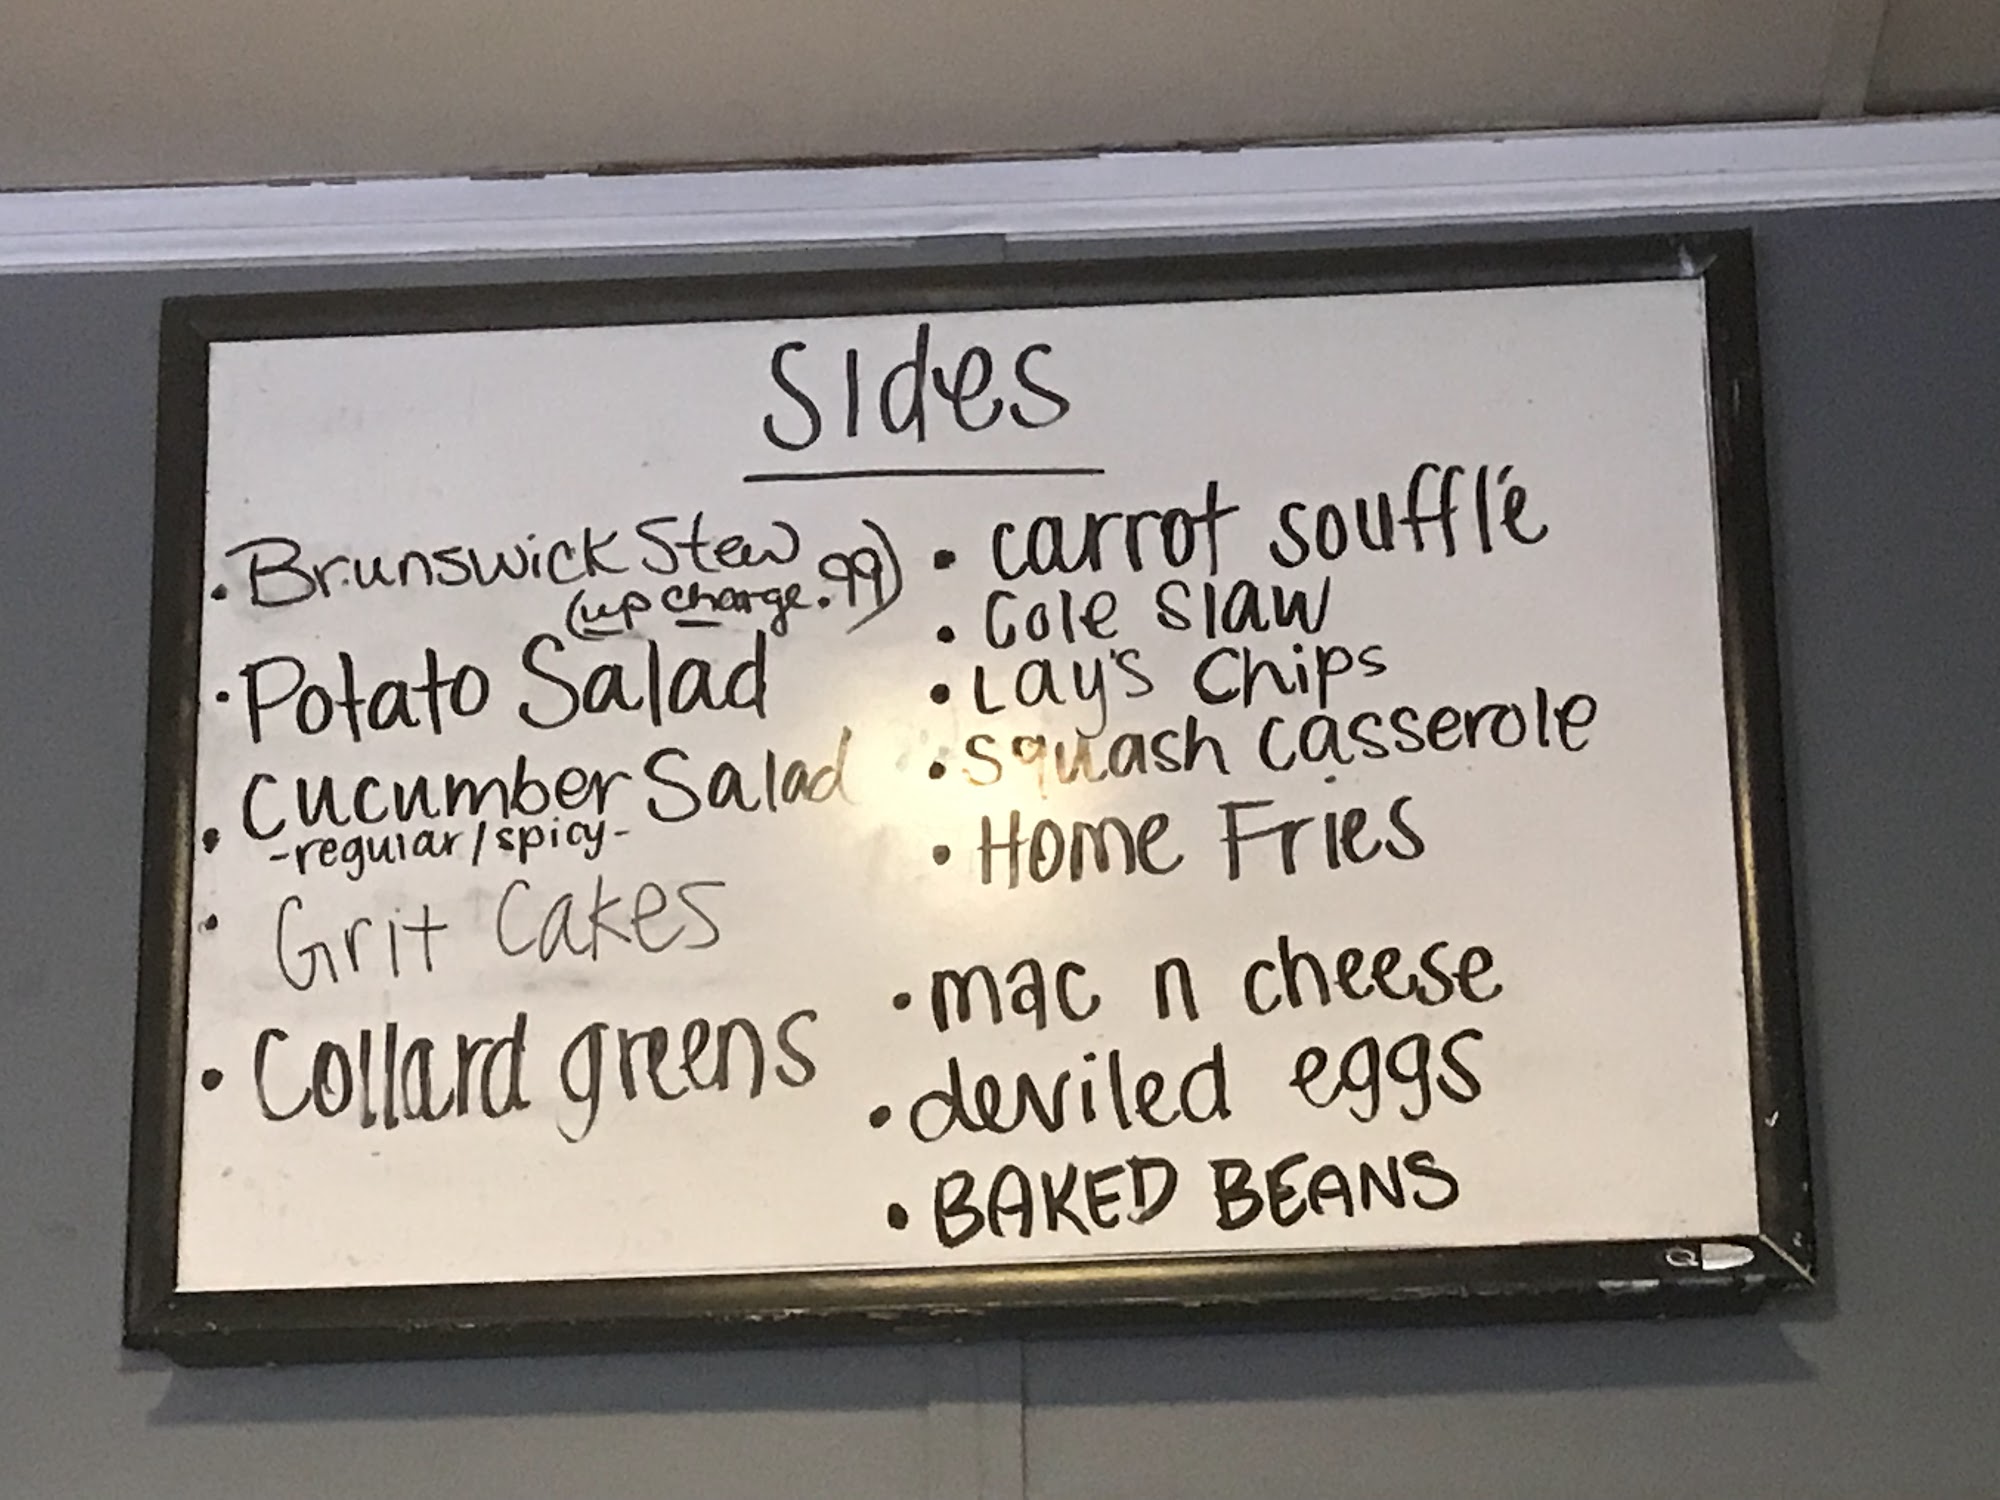 Sides
• Brunswick Stew
(up charge .99)
• Potato Salad
• Cucumber Salad
-regular/spicy-
• Grit Cakes
• Collard greens
• carrot soufflé
• Cole Slaw
• Lay's Chips
• Squash Casserole
• Home Fries
• mac n cheese
• deviled eggs
• BAKED BEANS